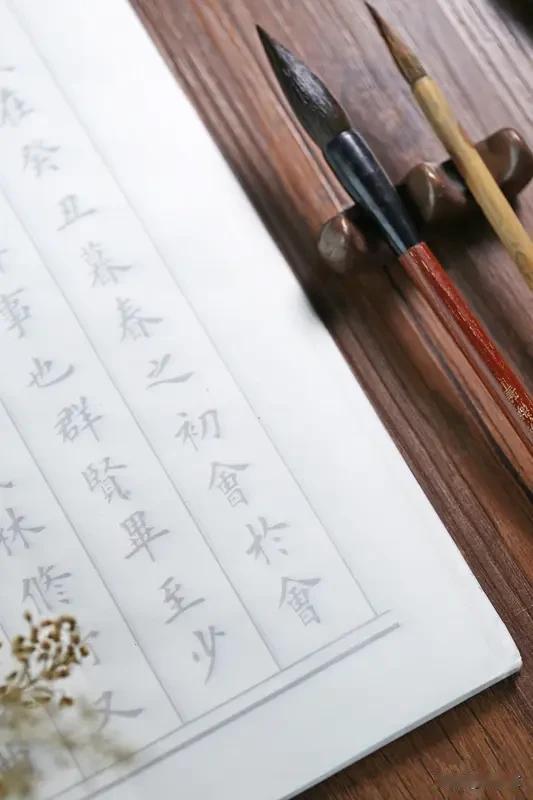 在癸丑暮春之初會於會
事也群賢畢至少
林修竹又